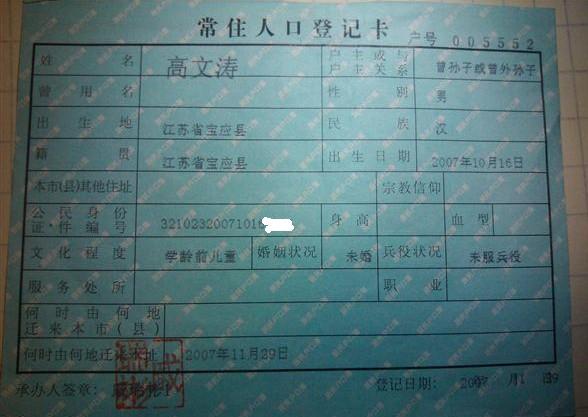 常住人口登记卡
户号 005552
姓名 高文涛 户主或与户主关系 曾孙子或曾外孙子
曾用名 性别 男
出生地 江苏省宝应县 民族 汉
籍贯 江苏省宝应县 出生日期 2007年10月16日
本市(县)其他住址 宗教信仰
公民身份证件编号 32102320071016 身高 血型
文化程度 学龄前儿童 婚姻状况 未婚 兵役状况 未服兵役
服务处所 职业
何时由何地迁来本市(县)
何时由何地迁来本址 2007年11月29日
承办人签章: 登记日期: